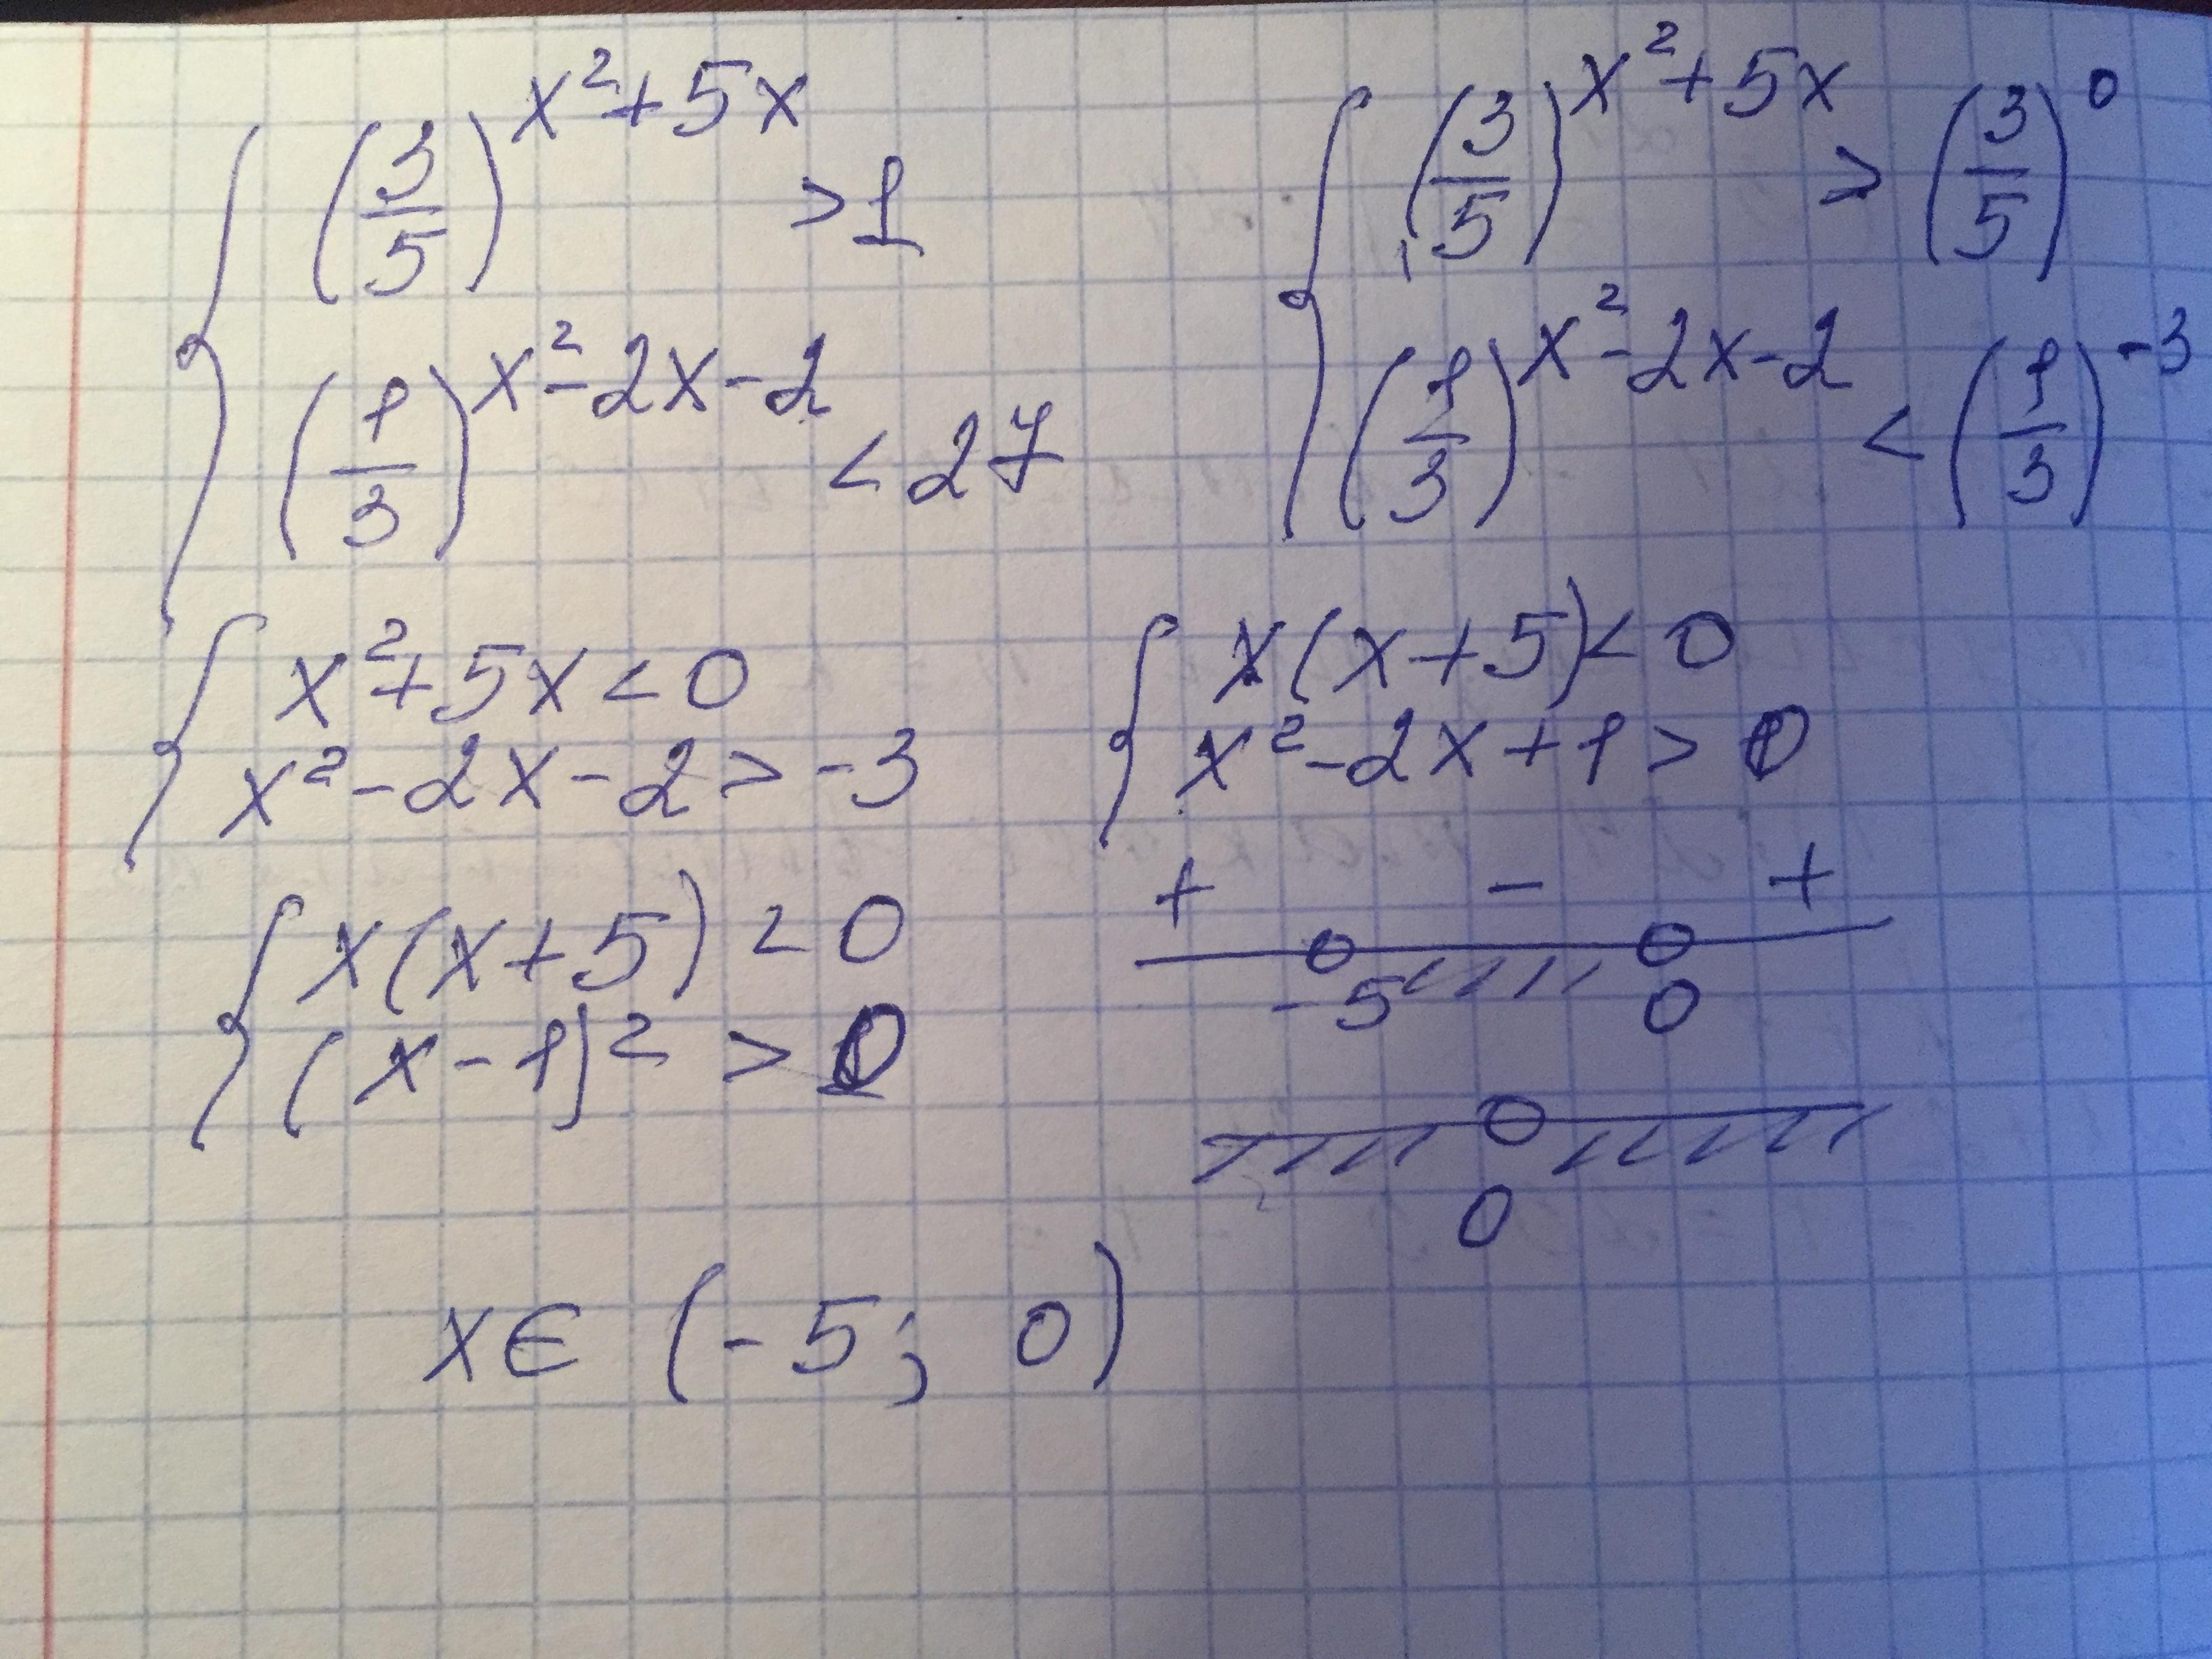 { (3/5)^(x²+5x) > 1
{ (1/3)^(x²-2x-2) < 27
{ (3/5)^(x²+5x) > (3/5)^0
{ (1/3)^(x²-2x-2) < (1/3)^(-3)
{ x²+5x<0
{ x²-2x-2>-3
{ x(x+5)<0
{ x²-2x+1>0
{ x(x+5)<0
{ (x-1)²>0
+ - +
-5 0
0
x∈(-5; 0)